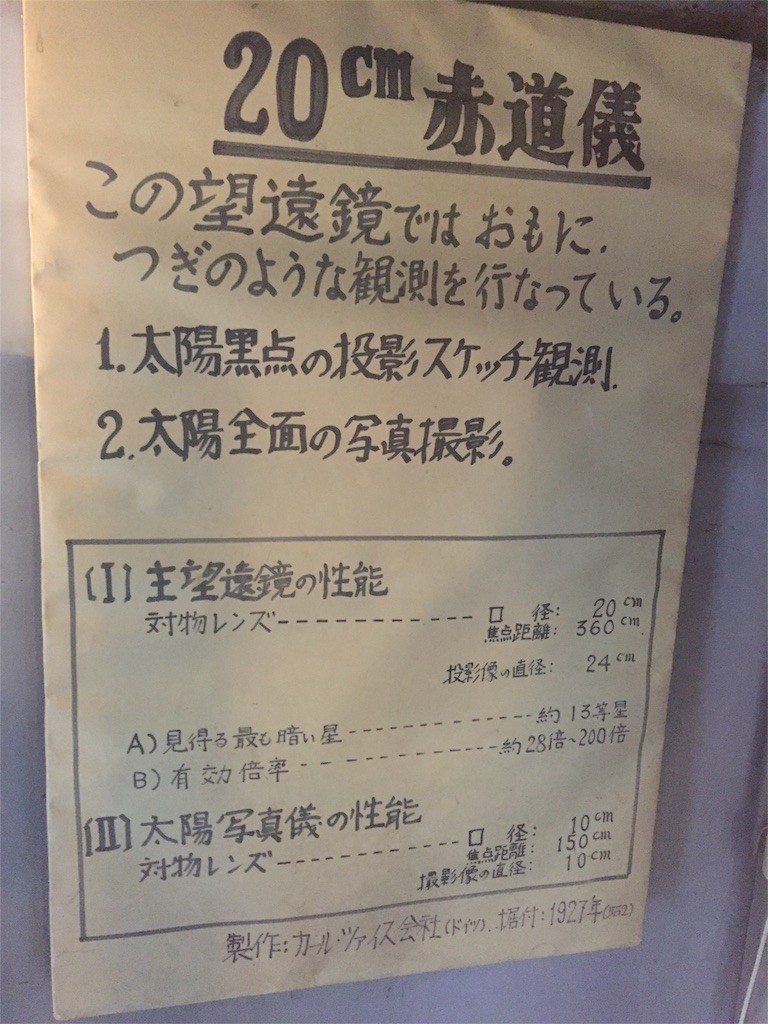 20cm赤道儀
この望遠鏡では おもに、
つぎのような観測を行なっている。
1.太陽黒点の投影スケッチ観測.
2.太陽全面の写真撮影。
〔Ⅰ〕主望遠鏡の性能
対物レンズ----------- 口 径: 20cm
焦点距離: 360cm
投影像の直径: 24cm
A)見得る最も暗い星------------約13等星
B)有効倍率-------------約28倍~200倍
〔Ⅱ〕太陽写真儀の性能
対物レンズ-----------口 径: 10cm
焦点距離: 150cm
撮影像の直径: 10cm
製作:カール・ツァイス会社(ドイツ). 据付:1927年(昭2)